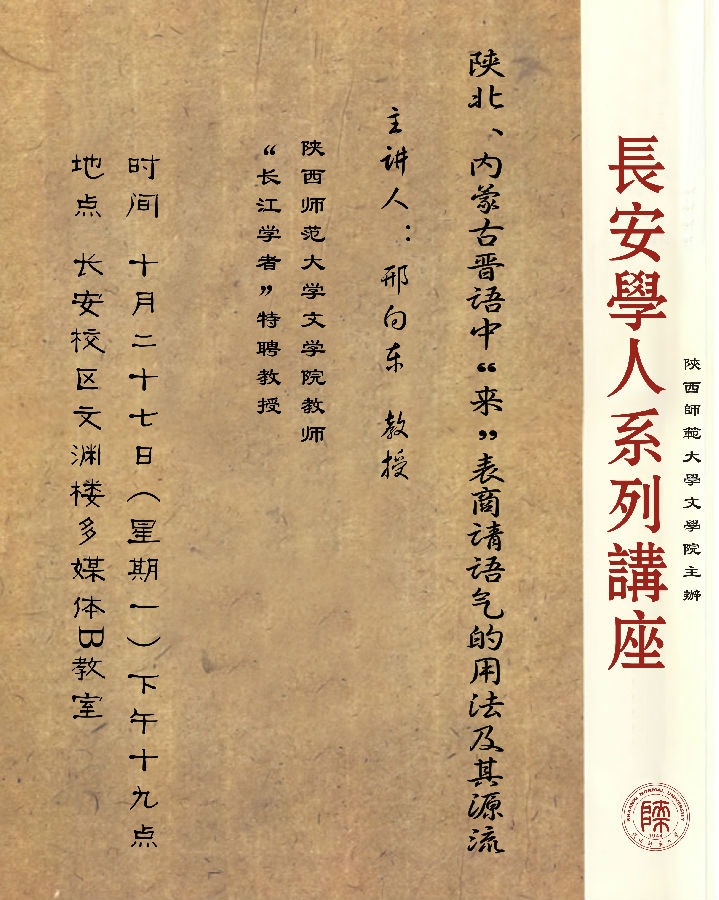 長安學人系列講座
陝西師範大學文學院主辦
陕北、内蒙古晋语中“来”表商请语气的用法及其源流
主讲人：邢向东 教授
陕西师范大学文学院教师
“长江学者”特聘教授
时间 十月二十七日（星期一）下午十九点
地点 长安校区文渊楼多媒体B教室
SHAANXI NORMAL UNIVERSITY
1944